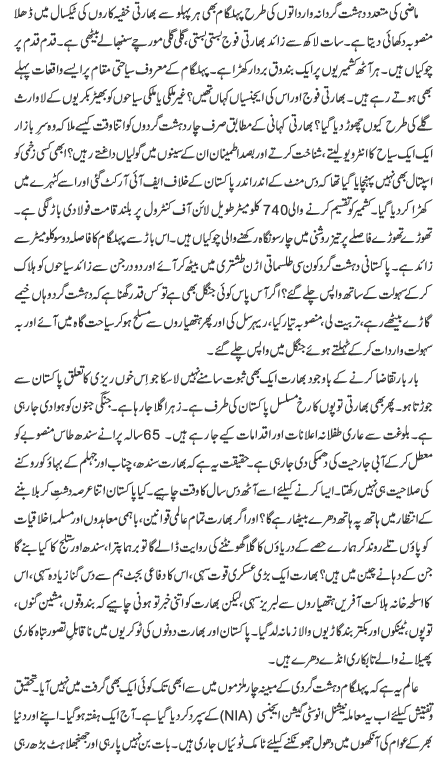 ماضی کی متعدد دہشت گردانہ وارداتوں کی طرح پہلگام بھی ہر پہلو سے بھارتی خفیہ کاروں کی ٹیکسال میں ڈھلا
منصوبہ دکھائی دیتا ہے۔ سات لاکھ سے زائد بھارتی فوج بستی بستی، گلی گلی مورچے سنبھالے بیٹھی ہے۔ قدم قدم پر
چوکیاں ہیں۔ ہر آٹھ کشمیریوں پر ایک بندوق بردار کھڑا ہے۔ پہلگام کے معروف سیاحتی مقام پر ایسے واقعات پہلے
بھی ہوتے رہے ہیں۔ بھارتی فوج اور اس کی ایجنسیاں کہاں تھیں؟ غیر ملکی یا ملکی سیاحوں کو بھیڑ بکریوں کے لاوارث
گلے کی طرح کیوں چھوڑ دیا گیا؟ بھارتی کہانی کے مطابق صرف چار دہشت گردوں کو اتنا وقت کیسے ملا کہ وہ سرِ بازار
ایک ایک سیاح کا انٹرویو لیتے، شناخت کرتے اور بصد اطمینان ان کے سینوں میں گولیاں داغتے رہیں؟ ابھی کسی زخمی کو
اسپتال بھی نہیں پہنچایا گیا تھا کہ دس منٹ کے اندر اندر پاکستان کے خلاف ایف آئی آر کٹ گئی اور اسے کٹہرے میں
کھڑا کر دیا گیا۔ کشمیر کو تقسیم کرنے والی 740 کلومیٹر طویل لائن آف کنٹرول پر بلند قامت فولادی باڑ لگی ہے۔
تھوڑے تھوڑے فاصلے پر تیز روشنی میں چار سو نگاہ رکھنے والی چوکیاں ہیں۔ اس باڑ سے پہلگام کا فاصلہ دو سو کلومیٹر سے
زائد ہے۔ پاکستانی دہشت گرد کون سی طلسماتی اڑن طشتری میں بیٹھ کر آئے اور دو درجن سے زائد سیاحوں کو ہلاک
کر کے سہولت کے ساتھ واپس چلے گئے؟ اگر آس پاس کوئی جنگل بھی ہے تو کس قدر گھنا ہے کہ دہشت گرد وہاں خیمے
گاڑے بیٹھے رہے، تربیت لی، منصوبہ تیار کیا، ریہرسل کی اور پھر ہتھیاروں سے مسلح ہو کر سیاحت گاہ میں آئے اور بہ
سہولت واردات کر کے ٹہلتے ہوئے جنگل میں واپس چلے گئے۔
بار بار تقاضا کرنے کے باوجود بھارت ایک بھی ثبوت سامنے نہیں لا سکا جو اِس خوں ریزی کا تعلق پاکستان سے
جوڑتا ہو۔ پھر بھی بھارتی توپوں کا رخ مسلسل پاکستان کی طرف ہے۔ زہر اُگلا جا رہا ہے۔ جنگی جنون کو ہوا دی جا رہی
ہے۔ بلوغت سے عاری طفلانہ اعلانات اور اقدامات کیے جا رہے ہیں۔ 65 سالہ پرانے سندھ طاس منصوبے کو
معطل کر کے آبی جارحیت کی دھمکی دی جا رہی ہے۔ حقیقت یہ ہے کہ بھارت سندھ، چناب اور جہلم کے بہاؤ کو روکنے
کی صلاحیت ہی نہیں رکھتا۔ ایسا کرنے کیلئے اسے آٹھ دس سال کا وقت چاہیے۔ کیا پاکستان اتنا عرصہ دشتِ کربلا بننے
کے انتظار میں ہاتھ پہ ہاتھ دھرے بیٹھا رہے گا؟ اور اگر بھارت تمام عالمی قوانین، باہمی معاہدوں اور مسلمہ اخلاقیات
کو پاؤں تلے روند کر ہمارے حصے کے دریاؤں کا گلا گھونٹنے کی روایت ڈالے گا تو برہما پترا، سندھ اور ستلج کا کیا بنے گا
جن کے دہانے چین میں ہیں؟ بھارت ایک بڑی عسکری قوت سہی، اس کا دفاعی بجٹ ہم سے دس گنا زیادہ سہی، اس
کا اسلحہ خانہ ہلاکت آفریں ہتھیاروں سے لبریز سہی، لیکن بھارت کو اتنی خبر تو ہونی چاہیے کہ بندوقوں، مشین گنوں،
توپوں، ٹینکوں اور بکتر بند گاڑیوں والا زمانہ لد گیا۔ پاکستان اور بھارت دونوں کی ٹوکریوں میں ناقابلِ تصور تباہ کاری
پھیلانے والے تابکاری انڈے دھرے ہیں۔
عالم یہ ہے کہ پہلگام دہشت گردی کے مبینہ چار ملزموں میں سے ابھی تک کوئی ایک بھی گرفت میں نہیں آیا۔ تحقیق
و تفتیش کیلئے اب یہ معاملہ نیشنل انوسٹی گیشن ایجنسی (NIA) کے سپرد کر دیا گیا ہے۔ آج ایک ہفتہ ہو گیا۔ اپنے اور دنیا
بھر کے عوام کی آنکھوں میں دھول جھونکنے کیلئے ٹامک ٹوئیاں جاری ہیں۔ بات بن نہیں پا رہی اور جھنجھلاہٹ بڑھ رہی